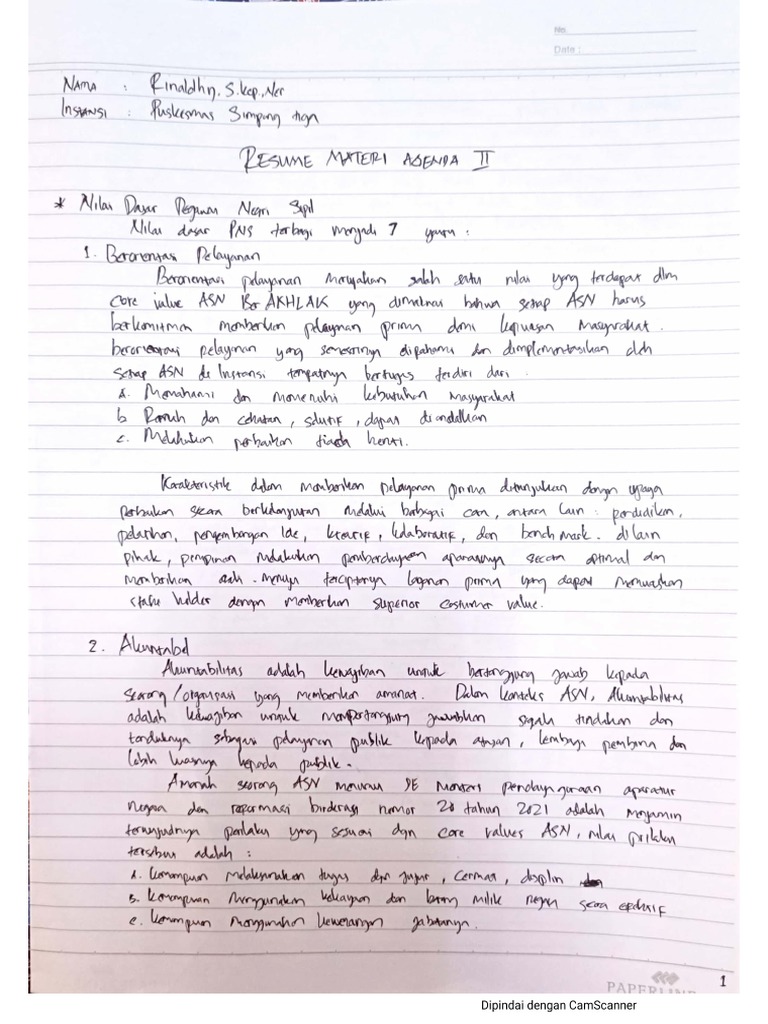 No.
Date :
NAMA : Rinaldhy, S.Kep, Ner
INSTANSI : Puskesmas Simpang tiga
RESUME MATERI AGENDA II
* Nilai Dasar Pegawai Negri Sipil
Nilai dasar PNS terbagi menjadi 7 yaitu :
1. Berorientasi Pelayanan
Berorientasi pelayanan merupakan salah satu nilai yang terdapat dlm
core value ASN BerAKHLAK yang dimaknai bahwa setiap ASN harus
berkomitmen memberikan pelayanan prima demi kepuasan Masyarakat.
berorientasi pelayanan yang semestinya dipahami dan dimplementasikan oleh
setiap ASN di Instansi tempatnya bertugas terdiri dari :
a. Memahami dan memenuhi kebutuhan Masyarakat
b Ramah dan cekatan, solutif, dapat diandalkan
c. Melakukan perbaikan tiada henti.
Karakteristik dalam memberikan pelayanan prima ditunjukan dengan upaya
perbaikan secara berkelanjutan melalui berbagai cara, antara lain : pendidikan,
pelatihan, pengembangan Ide, kreatif, kolaboratif, dan bench mark. dilain
pihak, pimpinan melakukan pemberdayaan aparaturnya secara optimal dan
memberikan arah menuju terciptanya layanan prima yang dapat memuaskan
stake holder dengan memberikan superior costumer value.
2. Akuntabel
Akuntabilitas adalah kewajiban untuk bertanggung jawab kepada
seorang/organisasi yang memberikan amanat. Dalam konteks ASN, Akuntabilitas
adalah kewajiban untuk mempertanggung jawabkan segala tindakan dan
tanduknya sebagai pelayanan publik kepada atasan, lembaga pembina dan
lebih luasnya kepada publik.
Amanah seorang ASN menurut SE Menteri pendayagunaan aparatur
negara dan reformasi birokrasi nomor 20 tahun 2021 adalah menjamin
terwujudnya perilaku yang sesuai dgn core values ASN, nilai prilaku
tersebut adalah :
A. Kemampuan melaksanakan tugas dgn jujur, cermat, disiplin
B. Kemampuan menggunakan kekayaan dan barang milik negara secara efektif
c. Kemampuan menggunakan kewenangan jabatannya.
PAPERLINE
1
Dipindai dengan CamScanner